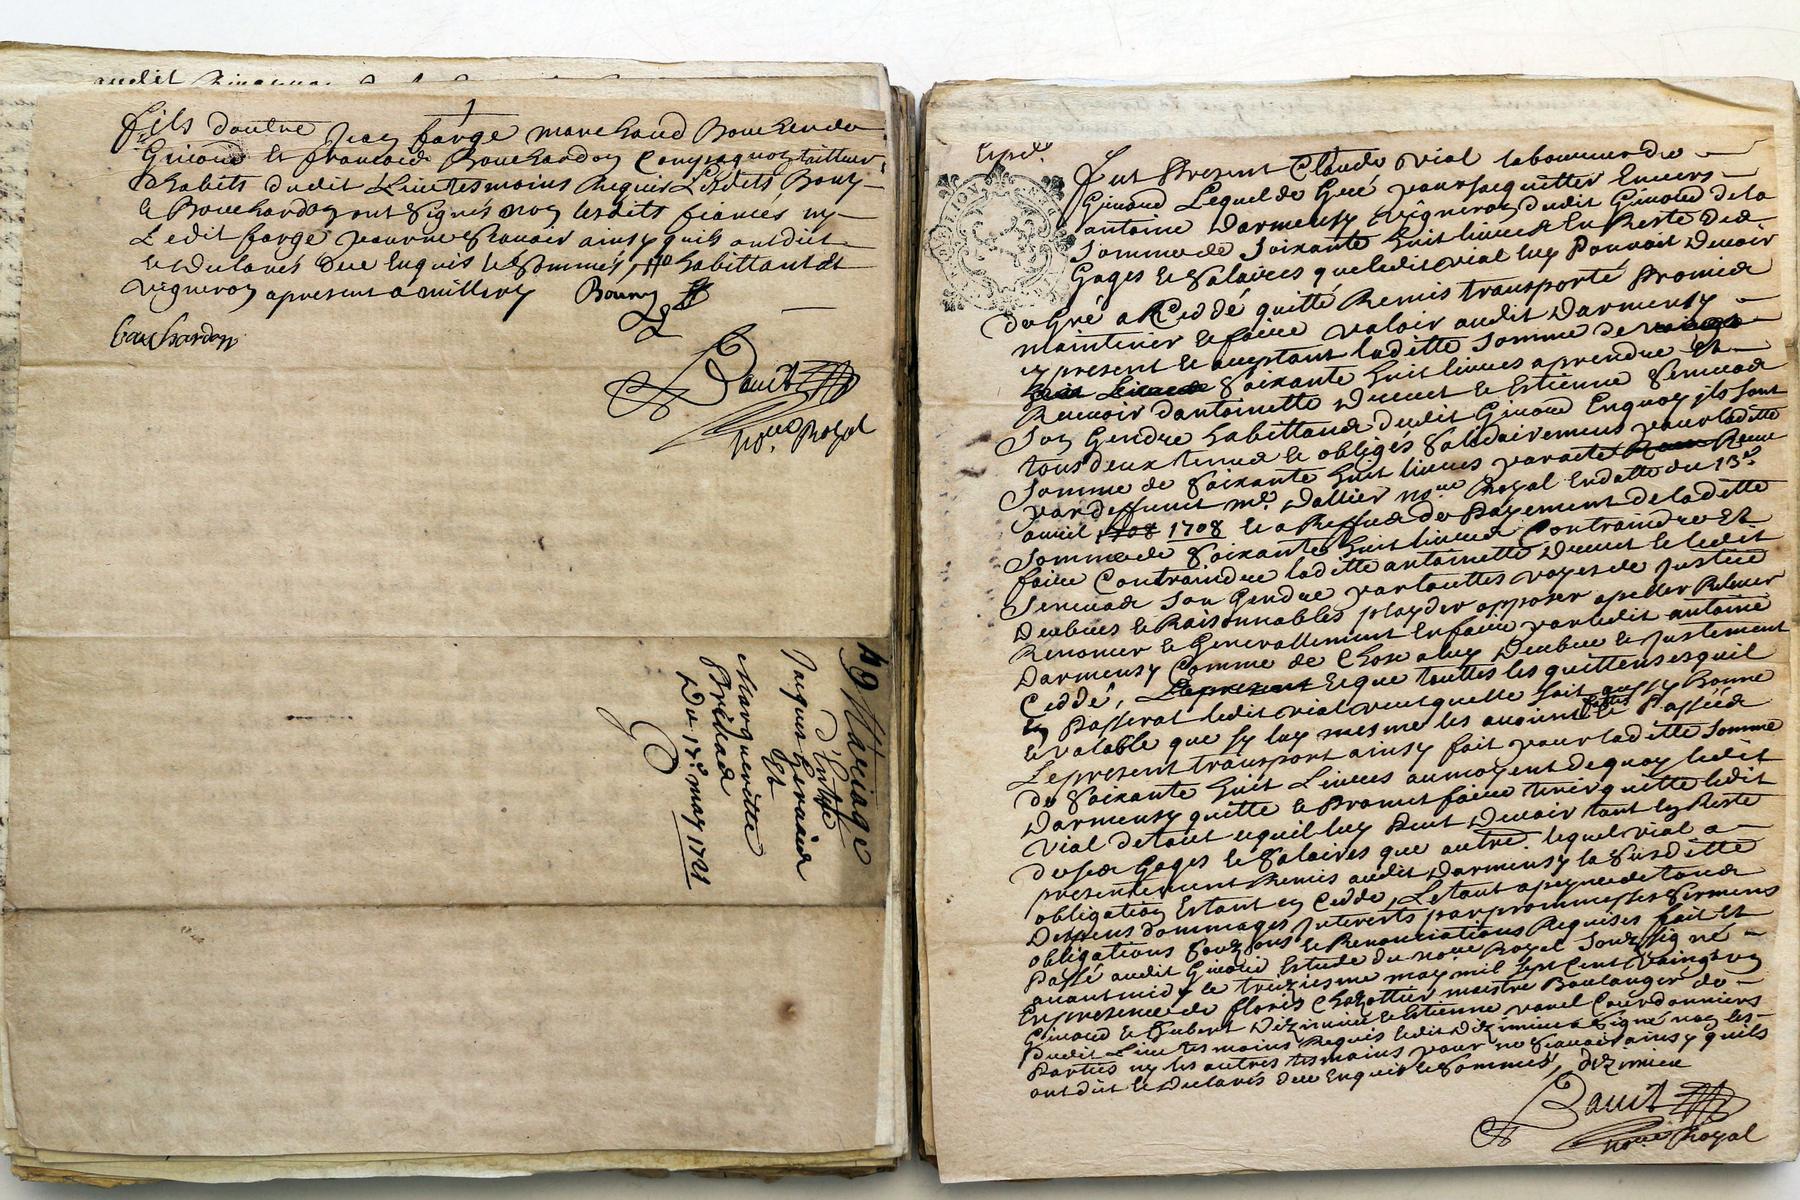 audit
fils dautre Jean farge marchand Boucher de
Givord et francois Bouchardon Compagnon tailleur
dhabits dudit Lieu tesmoins Requis Lesdits Bony
et Bouchardon ont signés non lesdits fiancés ny
Ledit farge pour ne sçavoir ainsy quils ont dit
et declarés deue Enquis et sommés, habittant et
vigneron apresent a millery Bouny
bouchardon
Bauit
no.re Royal
49 Mariage
d'Entre
Jacques
Et
Margueritte
Du 17e may 1721
Exped.
fut Present Claude vial laboureur de
Givord Lequel de Gré pour sacquitter Envers
antoine Darmensy vigneron dudit Givord de la
Somme de Soixante huit livres En Reste des
Gages et salaires que ledit vial luy Pouvoit Devoir
de Gré a Ceddé quitté Remis transporté Promis
maintenir et faire valoir audit Darmensy
cy present et acceptant laditte Somme de
soixante huit livres aprendre et
Recevoir dantoinette et Estienne
Son Gendre habittans dudit Givord Enquoy ils sont
tous deux tenus et obligés solidairement pour laditte
Somme de soixante huit livres par acte Receu
par deffunt me. Dallier no.re Royal En datte du 13e
avril 1708 et a Reffus de Payement de laditte
Somme de soixante huit livres Contraindre Et
faire Contraindre laditte antoinette et ledit
Son Gendre par touttes voyes de Justice
Deubues et Raisonnables playder opposer apeller Relever
Renoncer et Generallement En faire par ledit antoine
Darmensy Comme de Chose a luy Deubue et Justement
Ceddé, Et que touttes les quittences quil
En Passerat ledit vial veut quelle soit aussy Bonne
et valable que sy luy mesme les avoient faittes et Passées
Le present transport ainsy fait pour laditte Somme
de soixante huit Livres au moyent de quoy ledit
Darmensy quitte et Promet faire tenir quitte ledit
vial de tout ce quil luy Peut Devoir tant En Reste
de ses Gages et salaires que autre, lequel vial a
presentement Remis audit Darmensy la susditte
obligation Estant En Cedde, Le tout a peyne de tous
Despens dommages Interests par prommesses sermens
obligations soubmissions et Renonciations Requises fait et
Passé audit Givord Estude du no.re Royal Soubsigné
avant midy le treiziesme may mil sept cent vaingt un
En presence de floris Chozottier maistre Boulanger de
Givord et hubert Dizimieu et Estienne Courdonniers
dudit Lieu tesmoins Requis ledit Dizimieu a signé non les
Parties ny les autres tesmoins pour ne sçavoir ainsy quils
ont dit et Declarés deue Enquis et sommés, Dizimieu
Bauit
no.re Royal